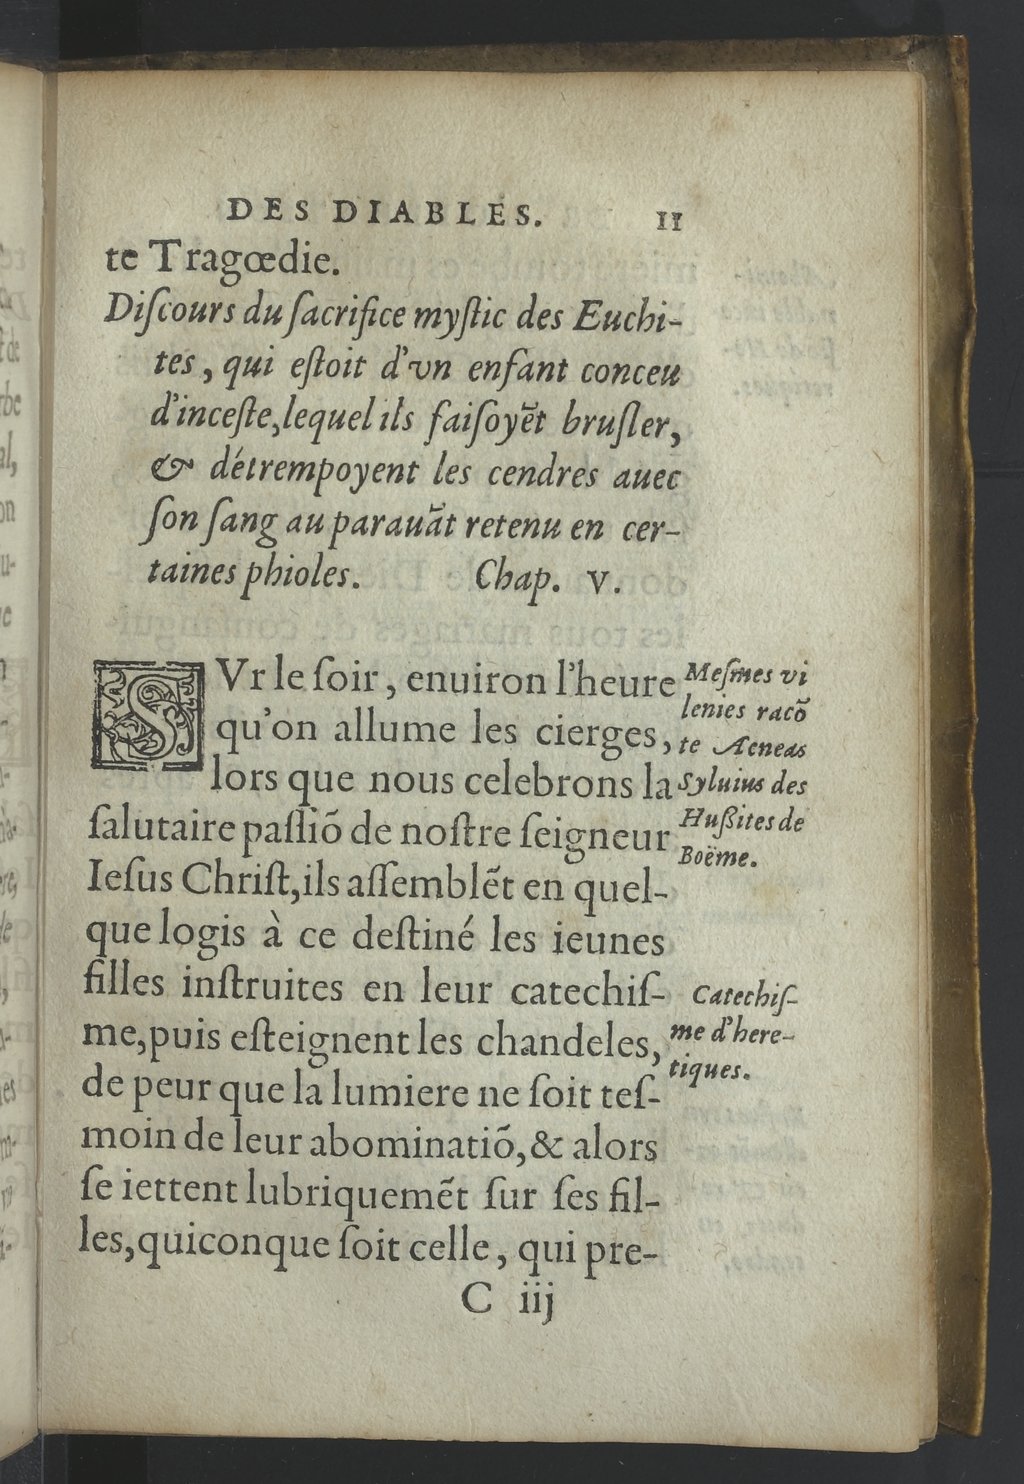 DES DIABLES. 11
te Tragœdie.
Diſcours du ſacrifice myſtic des Euchi-
tes, qui eſtoit d'vn enfant conceu
d'inceſte, lequel ils faiſoyẽt bruſler,
& détrempoyent les cendres auec
ſon ſang au parauãt retenu en cer-
taines phioles. Chap. V.
SVr le ſoir, enuiron l'heure
qu'on allume les cierges,
lors que nous celebrons la
ſalutaire paſſiõ de noſtre ſeigneur
Ieſus Chriſt, ils aſſemblẽt en quel-
que logis à ce deſtiné les ieunes
filles inſtruites en leur catechiſ-
me, puis eſteignent les chandeles,
de peur que la lumiere ne ſoit teſ-
moin de leur abominatiõ, & alors
ſe iettent lubriquemẽt ſur ſes fil-
les, quiconque ſoit celle, qui pre-
Meſmes vi
lenies racõ
te Aeneas
Syluius des
Hußites de
Boëme.
Catechiſ-
me d'here-
tiques.
C iij